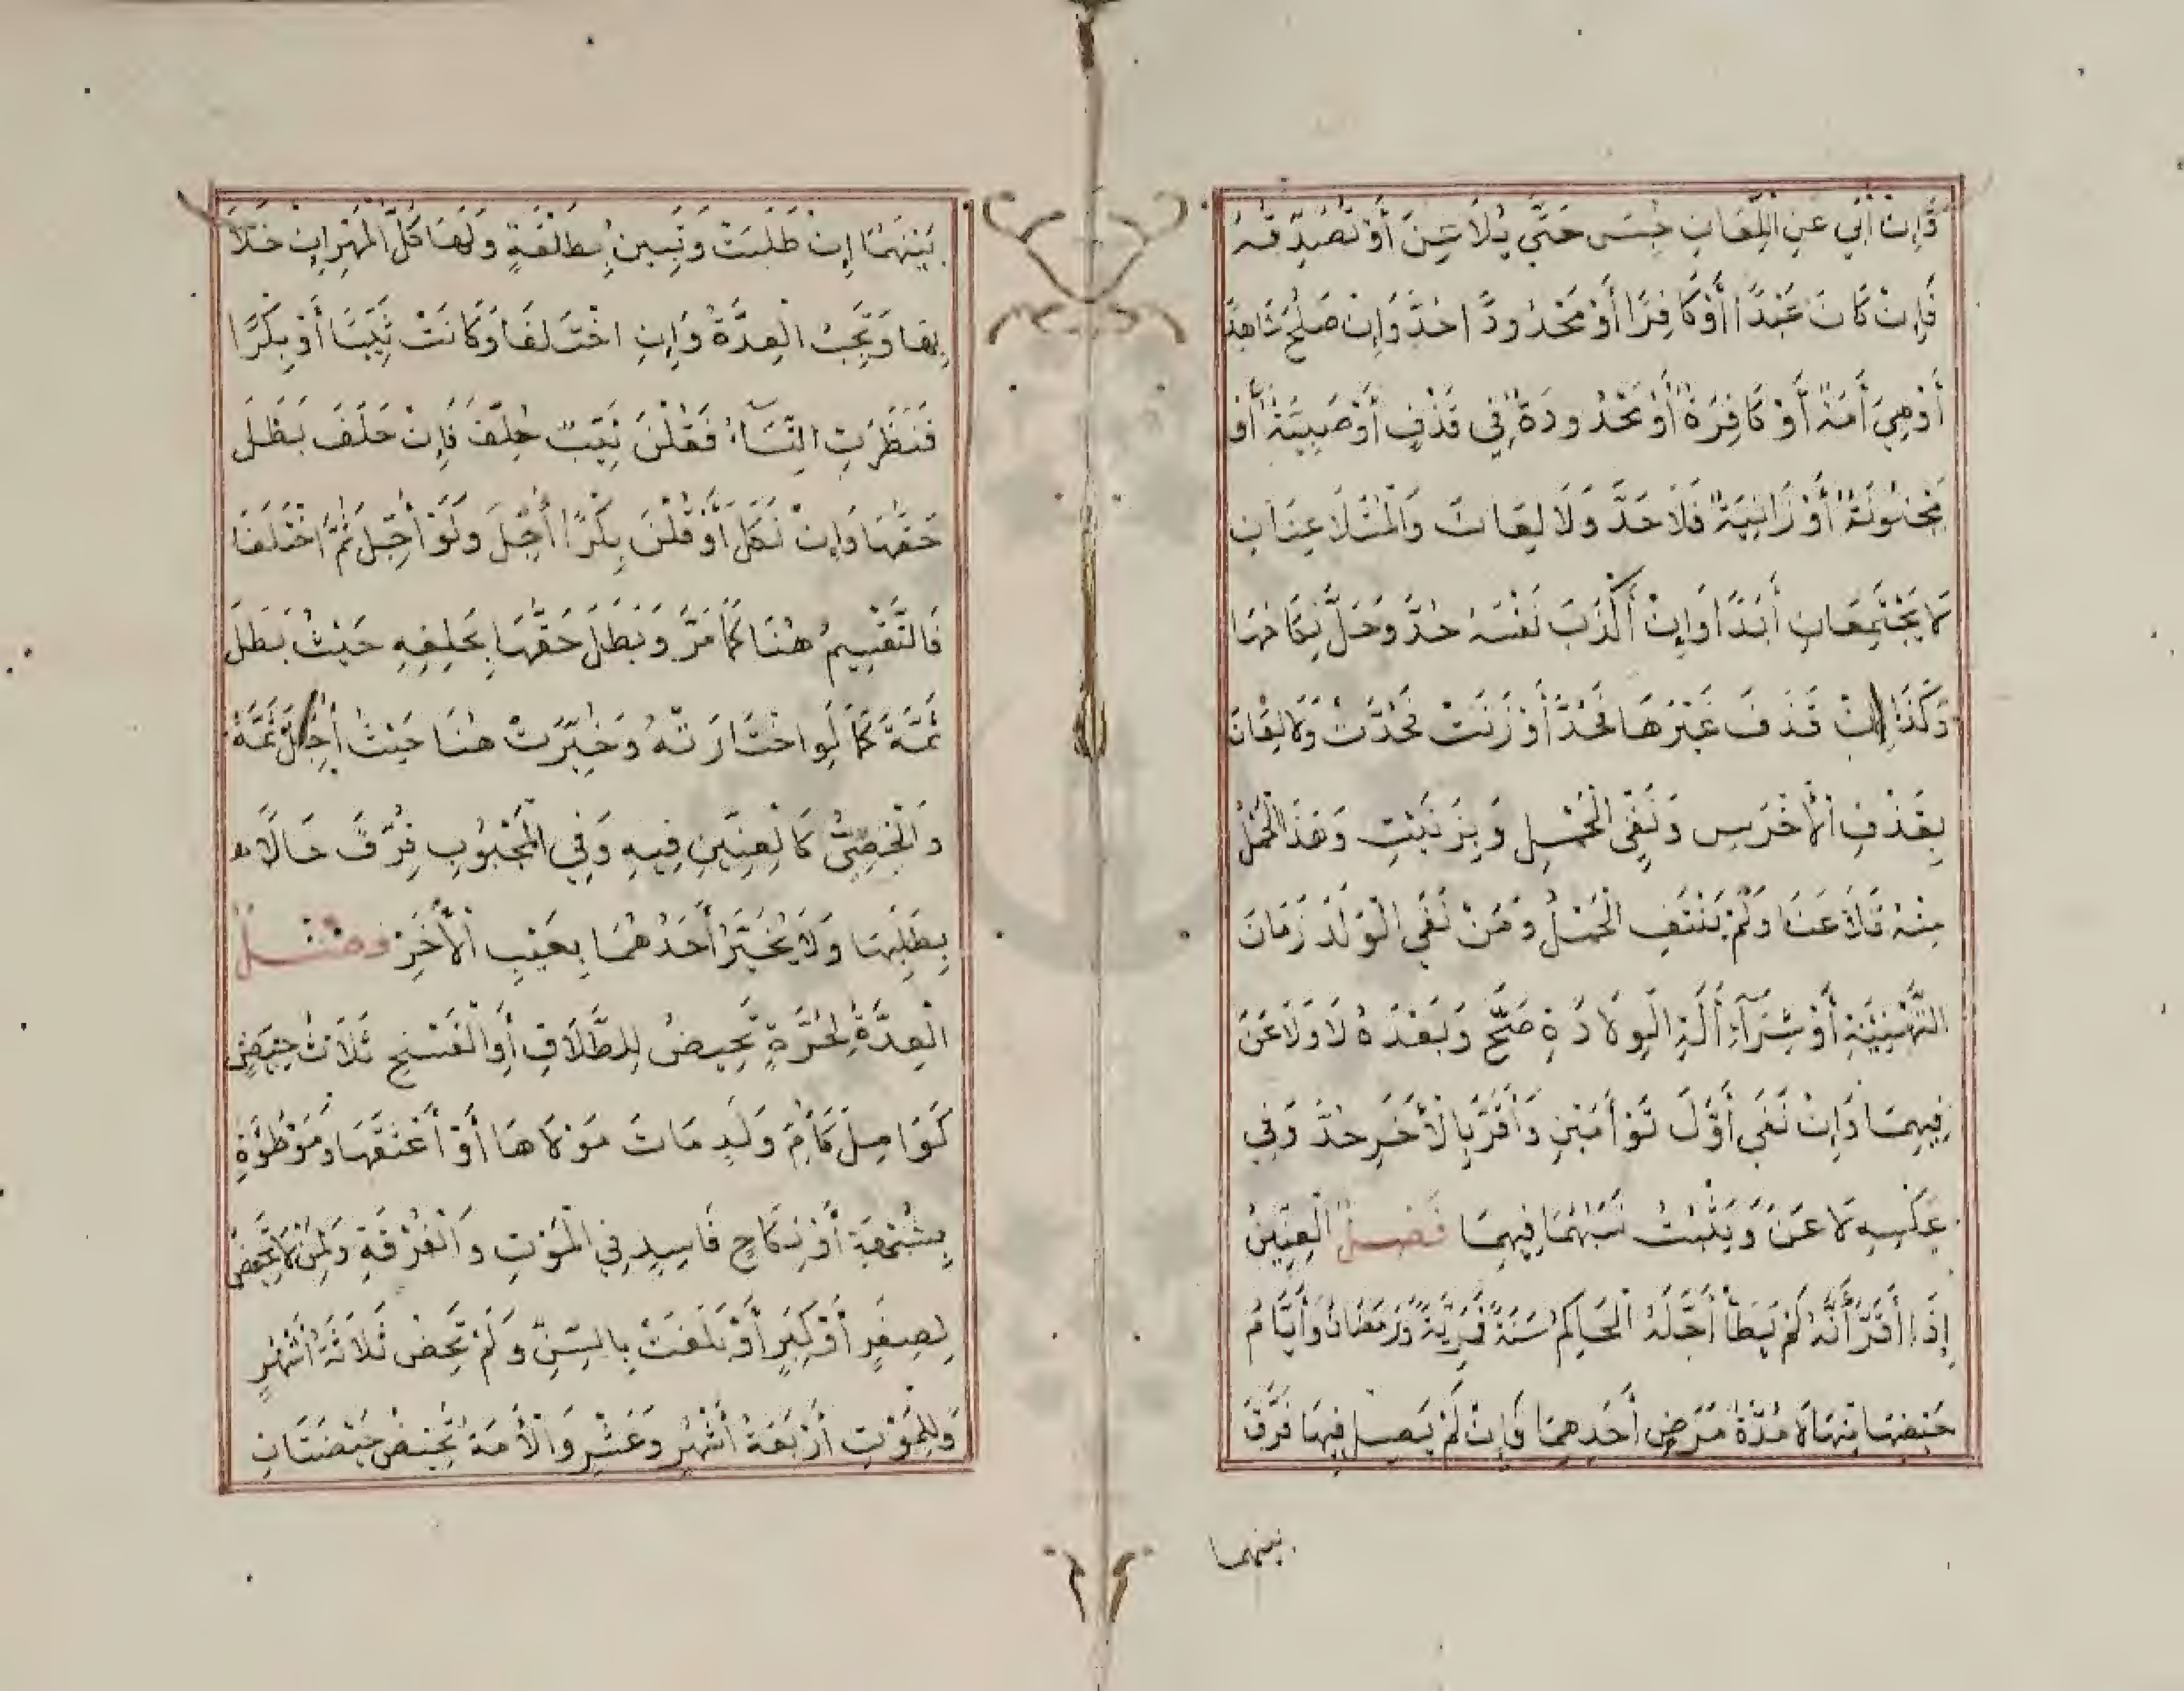 وَإِنْ أَبَى عَنِ اللِّعَانِ حُبِسَ حَتَّى يُلَاعِنَ أَوْ تُصَدِّقَهُ
فَإِنْ كَانَ عَبْدًا أَوْ كَافِرًا أَوْ مَحْدُودًا حُدَّ وَإِنْ صَلُحَ شَاهِدًا
أَوْ هِيَ أَمَةٌ أَوْ كَافِرَةٌ أَوْ مَحْدُودَةٌ فِي قَذْفٍ أَوْ صَبِيَّةٌ أَوْ
مَجْنُونَةٌ أَوْ زَانِيَةٌ فَلَا حَدَّ وَلَا لِعَانَ وَالْمُتَلَاعِنَانِ
لَا يَجْتَمِعَانِ أَبَدًا وَإِنْ أَكْذَبَ نَفْسَهُ حُدَّ وَحَلَّ نِكَاحُهَا
وَكَذَا إِنْ قَذَفَ غَيْرَهَا فَحُدَّ أَوْ زَنَتْ فَحُدَّتْ وَلَا لِعَانَ
بِقَذْفِ الْأَخْرَسِ وَنَفْيِ الْحَمْلِ وَبِزَنَيْتِ وَهَذَا الْحَمْلُ
مِنْهُ تَلَاعَنَا وَلَمْ يَنْتَفِ الْحَمْلُ وَمَنْ نَفَى الْوَلَدَ زَمَانَ
التَّهْنِيَةِ أَوْ شِرَآءِ أَلَةِ الْوِلَادَةِ صَحَّ وَبَعْدَهُ لَا وَلَاعَنَ
فِيهِمَا وَإِنْ نَفَى أَوَّلَ تَوْأَمَيْنِ وَأَقَرَّ بِالْأَخَرِ حُدَّ وَفِي
عَكْسِهِ لَاعَنَ وَيَثْبُتُ نَسَبُهُمَا فِيهِمَا فَصْلٌ الْعِنِّينُ
إِذَا أَقَرَّ أَنَّهُ لَمْ يَطَأْ أَجَّلَهُ الْحَاكِمُ سَنَةً قَمَرِيَّةً وَرَمَضَانُ وَأَيَّامُ
حَيْضِهَا مِنْهَا لَا مُدَّةُ مَرَضِ أَحَدِهِمَا فَإِنْ لَمْ يَصِلْ فِيهَا فَرَّقَ
بينهما
بَيْنَهُمَا إِنْ طَلَبَتْ وَتَبِينُ بِطَلْقَةٍ وَلَهَا كُلُّ الْمَهْرِ إِنْ خَلَا
بِهَا وَتَجِبُ الْعِدَّةُ وَإِنِ اخْتَلَفَا وَكَانَتْ ثَيِّبًا أَوْ بِكْرًا
فَنَظَرَتِ النِّسَآءُ فَقُلْنَ ثَيِّبٌ حُلِّفَ فَإِنْ حَلَفَ بَطَلَ
حَقُّهَا وَإِنْ نَكَلَ أَوْ قُلْنَ بِكْرًا أُجِّلَ وَلَوْ أُجِّلَ ثُمَّ اخْتَلَفَا
فَالتَّقْسِيمُ هُنَا كَمَا مَرَّ وَبَطَلَ حَقُّهَا بِحَلِفِهِ حَيْثُ بَطَلَ
ثَمَّةَ كَمَا لَوِ اخْتَارَتْهُ وَخُيِّرَتْ هُنَا حَيْثُ أُجِّلَ ثَمَّةَ
وَالْخَصِيُّ كَالْعِنِّينِ فِيهِ وَفِي الْمَجْبُوبِ فُرِّقَ حَالًا
بِطَلَبِهَا وَلَا يُخَيَّرُ أَحَدُهُمَا بِعَيْبِ الْأَخَرِ فَصْلٌ
الْعِدَّةُ لِحُرَّةٍ تَحِيضُ لِلطَّلَاقِ أَوِ الْفَسْخِ ثَلَاثُ حِيَضٍ
كَوَامِلَ كَأُمِّ وَلَدٍ مَاتَ مَوْلَاهَا أَوْ أَعْتَقَهَا وَمَوْطُوَّةٍ
بِشُبْهَةٍ أَوْ نِكَاحٍ فَاسِدٍ فِي الْمَوْتِ وَالْفُرْقَةِ وَلِمَنْ لَا تَحِيضُ
لِصِغَرٍ أَوْ كِبَرٍ أَوْ بَلَغَتْ بِالسِّنِّ وَلَمْ تَحِضْ ثَلَاثَةُ أَشْهُرٍ
وَلِلْمَوْتِ أَرْبَعَةُ أَشْهُرٍ وَعَشْرٍ وَالْأَمَةُ تَحِيضُ حَيْضَتَانِ